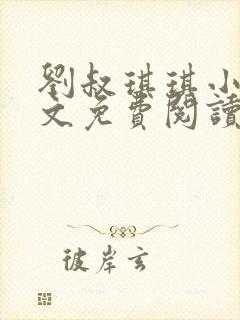 劉叔琪琪小
文免費閱讀
彼岸玄